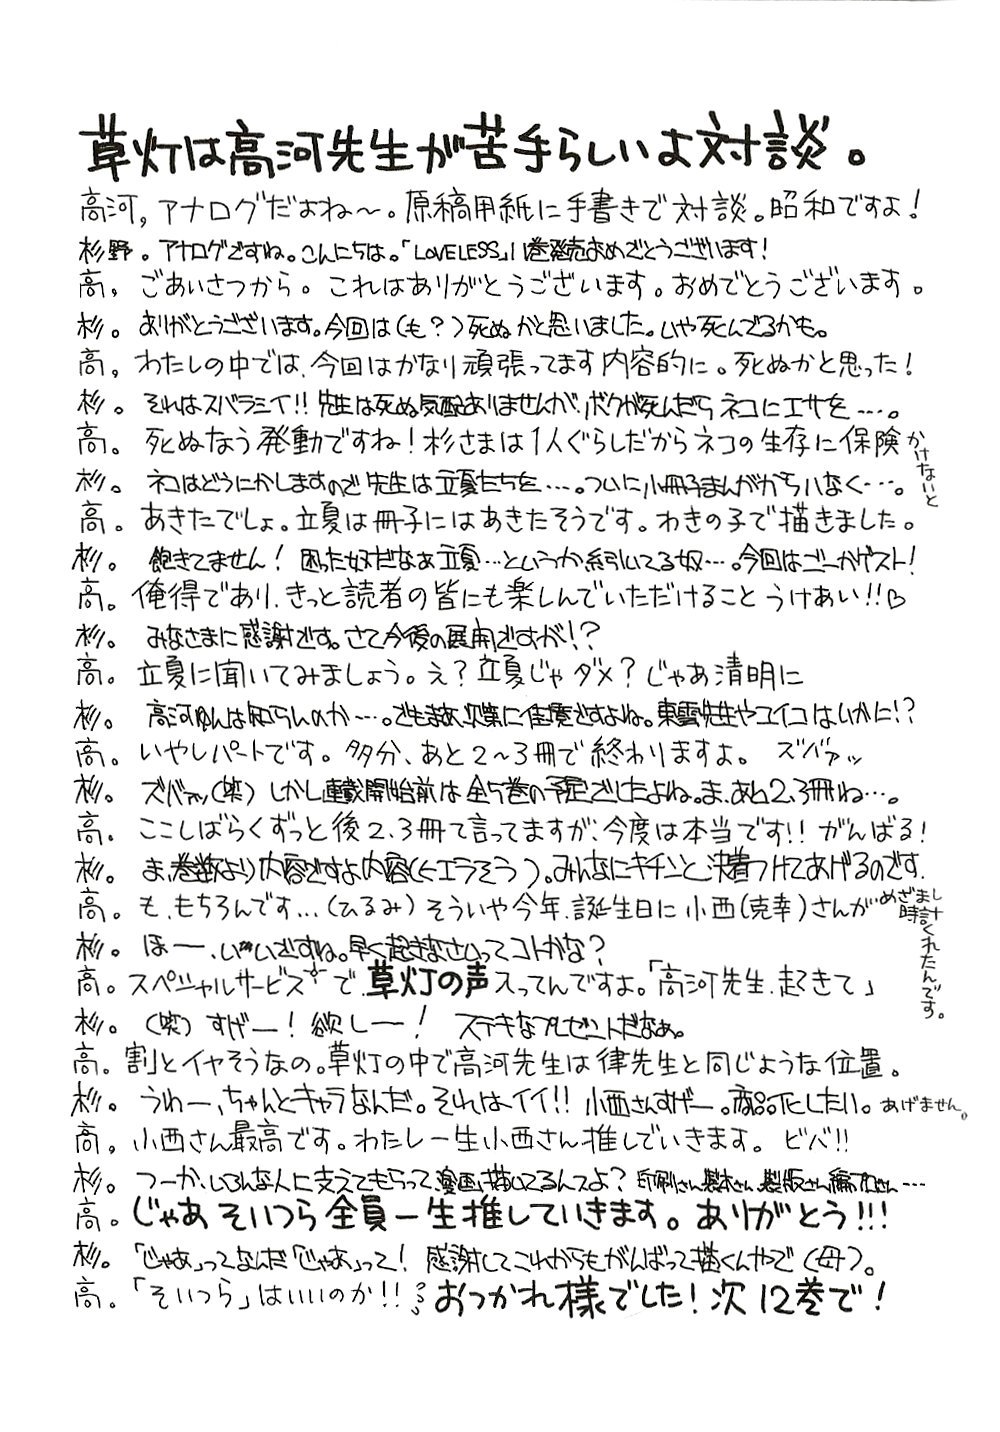 草灯は高河先生が苦手らしいよ対談。
高河, アナログだよね〜。原稿用紙に手書きで対談。昭和ですよ!
杉野。アナログですね。こんにちは。「LOVELESS」11巻発売おめでとうございます!
高, ごあいさつから。これはありがとうございます。おめでとうございます。
杉。ありがとうございます。今回は(も?)死ぬかと思いました。いや死んでるかも。
高, わたしの中では、今回はかなり頑張ってます内容的に。死ぬかと思った!
杉。それはスバラシイ!!先生は死ぬ気配ありませんが、ボクが死んだらネコにエサを…。
高。死ぬなう発動ですね!杉さまは1人ぐらしだからネコの生存に保険かけないと
杉。ネコはどうにかしますので先生は立夏たちを…。ついに小冊子まんががちいなく…。
高。あきたでしょ。立夏は冊子にはあきたそうです。わきの子で描きました。
杉。飽きてません!困った奴だなあ立夏…というか糸引いてる奴…。今回はゴーカゲスト!
高。俺得であり、きっと読者の皆にも楽しんでいただけることうけあい!!♡
杉。みなさまに感謝です。さて今後の展開ですが!?
高。立夏に聞いてみましょう。え?立夏じゃダメ?じゃあ清明に
杉。高河ゆんは知らんのか…。でもまあ、次第に佳境ですよね。東雲先生やユイコはいかに!?
高。いやしパートです。多分、あと2〜3冊で終わりますよ。ズバァッ
杉。ズバァッ(笑)しかし連載開始前は全5巻の予定でしたよね。ま、あと2、3冊ね…。
高。ここしばらくずっと後2、3冊て言ってますが、今度は本当です!!がんばる!
杉。ま、巻数より内容ですよ内容(←エラそう)。みんなにキチンと決着つけてあげるのです。
高。も、もちろんです…(ひるみ)そういや今年、誕生日に小西(克幸)さんがめざまし時計くれたんです。
杉。ほー、いーいですね。早く起きなさいってコトかな?
高。スペシャルサービスで、草灯の声入ってんですよ。「高河先生、起きて」
杉。(笑)すげー!欲しー!ステキなプレゼントだなぁ。
高。割とイヤそうなの。草灯の中で高河先生は律先生と同じような位置。
杉。うわー、ちゃんとキャラなんだ。それはイイ!!小西さんすげー。商品化したい。あげません。
高, 小西さん最高です。わたし一生小西さん推していきます。ビバ!!
杉。つーか、いろんな人に支えてもらって、漫画描いてるんスよ?印刷さん製本さん製版さん編プロさん…
高。じゃあそいつら全員一生推していきます。ありがとう!!!
杉。「じゃあ」ってなんだ「じゃあ」って!感謝してこれからもがんばって描くんやで(母)。
高。「そいつら」はいいのか!!おつかれ様でした!次12巻で!